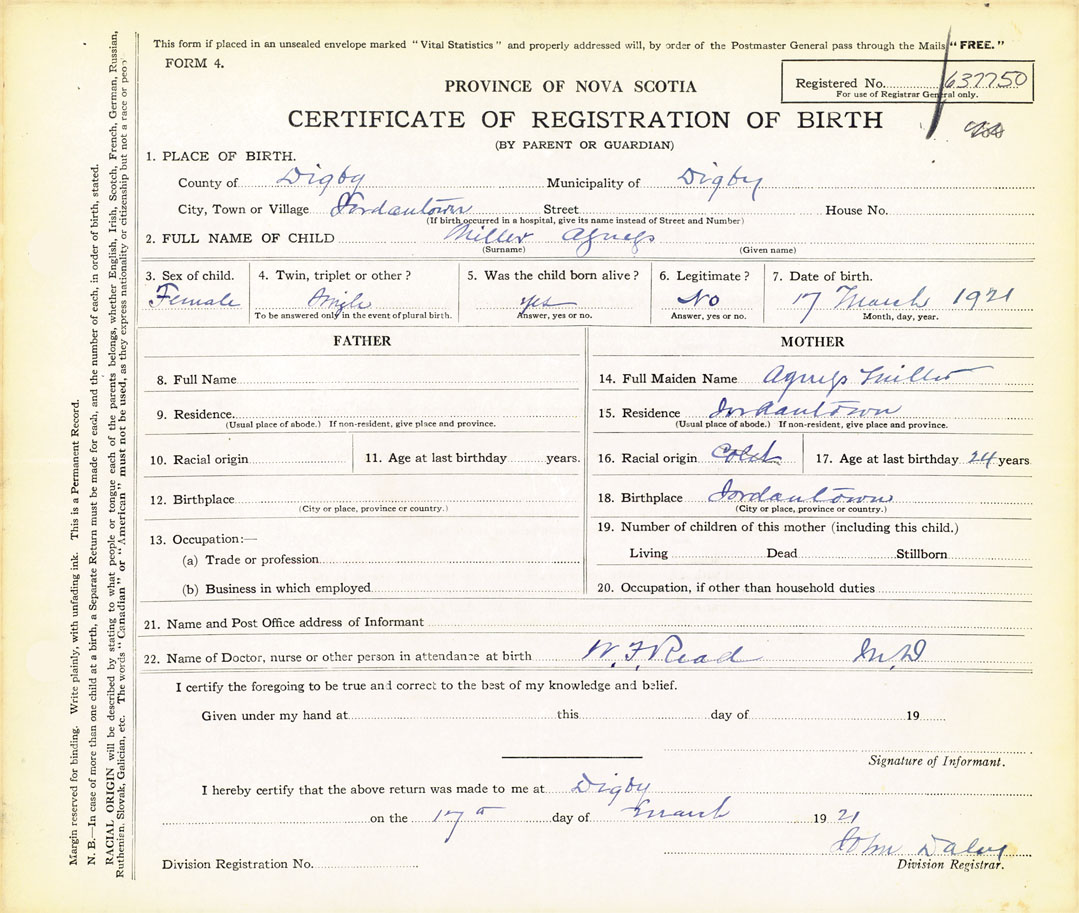 This form if placed in an unsealed envelope marked "Vital Statistics" and properly addressed will, by order of the Postmaster General pass through the Mails "FREE."
FORM 4.
Registered No. 637750
For use of Registrar General only.
PROVINCE OF NOVA SCOTIA
CERTIFICATE OF REGISTRATION OF BIRTH
(BY PARENT OR GUARDIAN)
1. PLACE OF BIRTH.
County of Digby Municipality of Digby
City, Town or Village Jordantown Street House No.
(If birth occurred in a hospital, give its name instead of Street and Number)
2. FULL NAME OF CHILD Miller Agness
(Surname) (Given name)
3. Sex of child. 4. Twin, triplet or other? 5. Was the child born alive? 6. Legitimate? 7. Date of birth.
Female Single yes No 17 March 1921
To be answered only in the event of plural birth. Answer, yes or no. Answer, yes or no. Month, day, year.
FATHER
8. Full Name
9. Residence.
(Usual place of abode.) If non-resident, give place and province.
10. Racial origin 11. Age at last birthday years.
12. Birthplace
(City or place, province or country.)
13. Occupation:—
(a) Trade or profession
(b) Business in which employed
MOTHER
14. Full Maiden Name Agness Miller
15. Residence Jordantown
(Usual place of abode.) If non-resident, give place and province.
16. Racial origin Cold 17. Age at last birthday 24 years
18. Birthplace Jordantown
(City or place, province or country.)
19. Number of children of this mother (including this child.)
Living Dead Stillborn
20. Occupation, if other than household duties
21. Name and Post Office address of Informant
22. Name of Doctor, nurse or other person in attendance at birth W. F. Read M.D
I certify the foregoing to be true and correct to the best of my knowledge and belief.
Given under my hand at this day of 19
Signature of Informant.
I hereby certify that the above return was made to me at Digby
on the 17 day of March 19 21
John Daley
Division Registration No. Division Registrar.
Margin reserved for binding. Write plainly, with unfading ink. This is a Permanent Record.
N. B.—In case of more than one child at a birth, a Separate Return must be made for each, and the number of each, in order of birth, stated.
RACIAL ORIGIN will be described by stating to what people or tongue each of the parents belongs, whether English, Irish, Scotch, French, German, Russian,
Ruthenian, Slovak, Galician, etc. The words "Canadian" or "American" must not be used, as they express nationality or citizenship but not a race or people